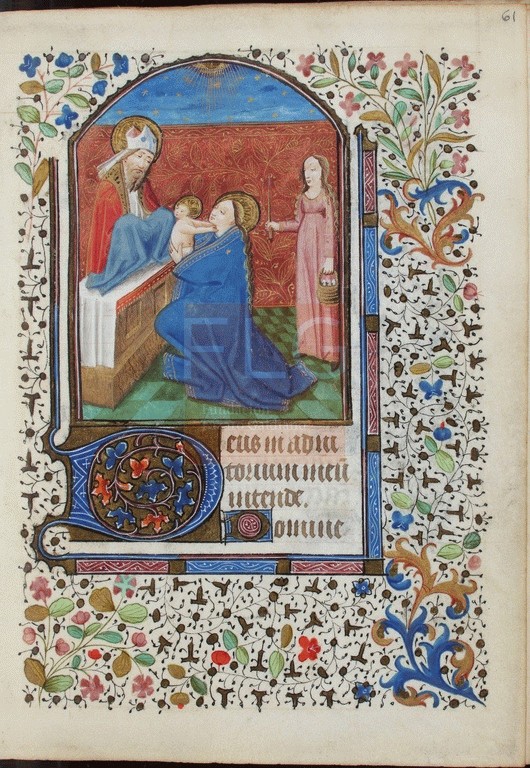 61
Deus in adiu
torium meū
intende.
Domine
FLG